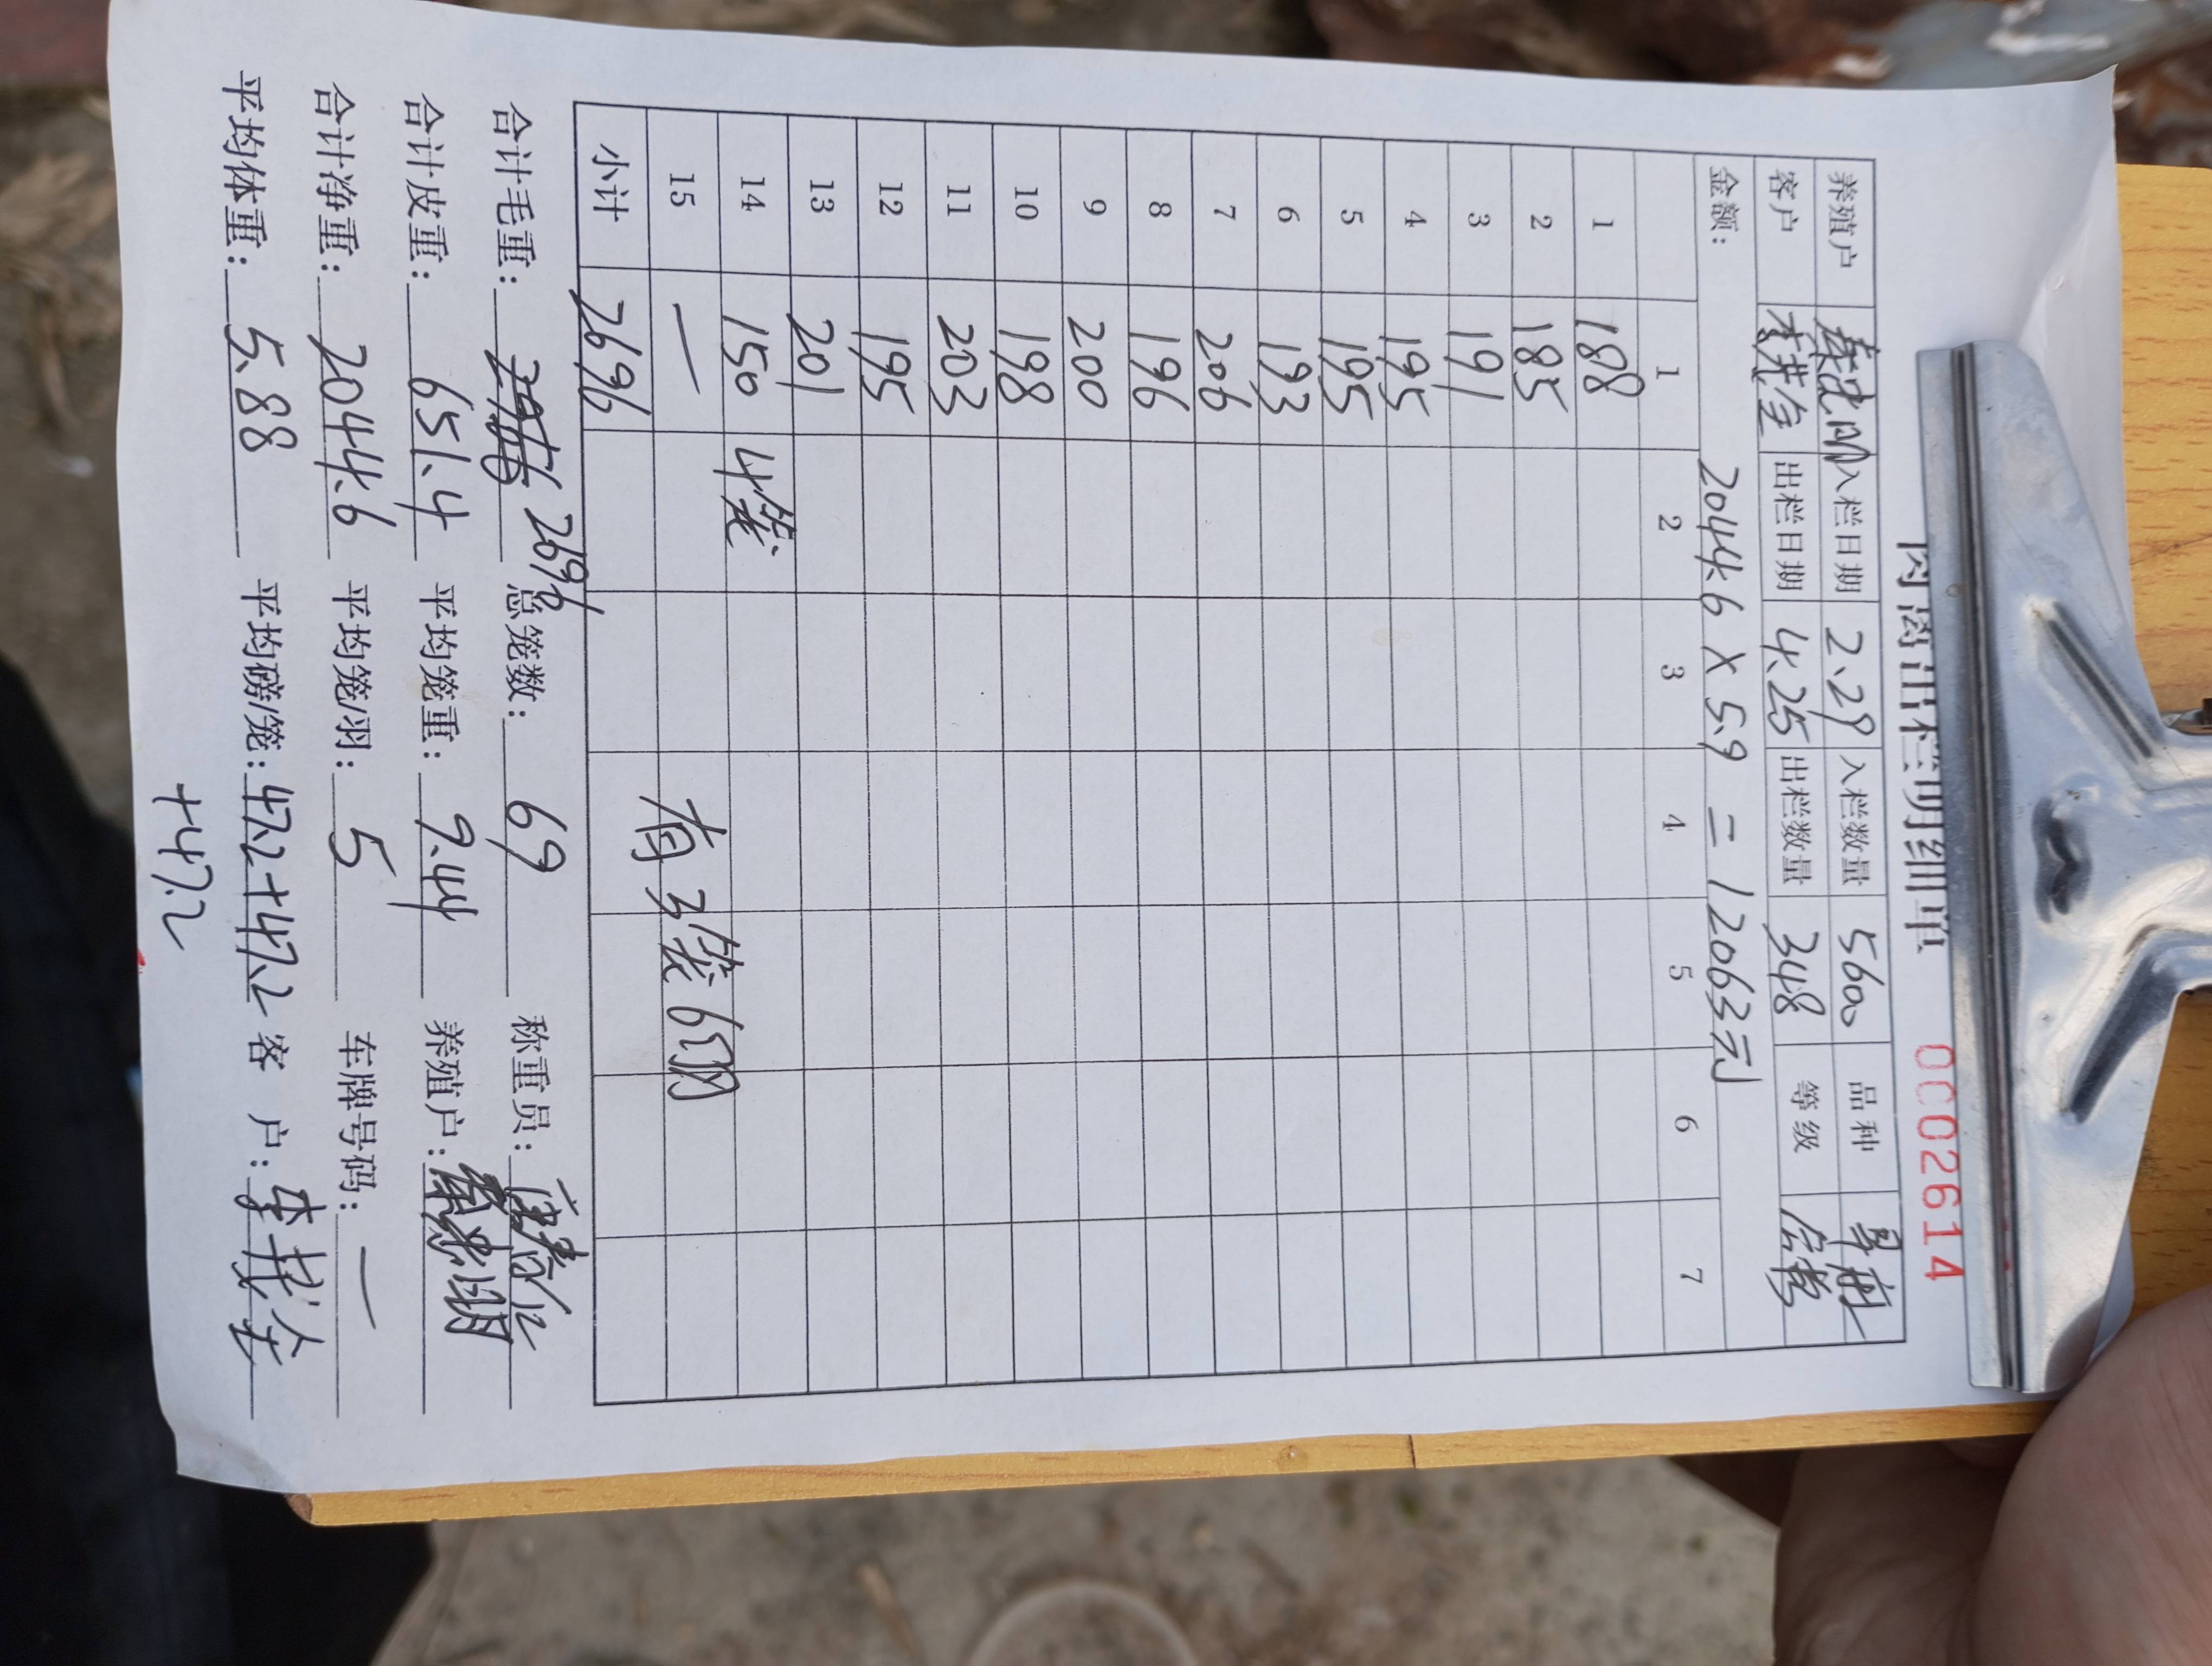 肉禽出栏明细单 0002614
养殖户 入栏日期 2.29 入栏数量 5600 品种
客户 出栏日期 4.25 出栏数量 348 等级
金额： 2044.6 × 5.9 = 12063元
1 2 3 4 5 6 7
1 188
2 185
3 191
4 195
5 195
6 193
7 206
8 196
9 200
10 198
11 203
12 195
13 201
14 150 4笼
15 — 有3笼6羽
小计 2696
合计毛重： 2696 总笼数： 69 称重员：
合计皮重： 651.4 平均笼重： 9.44 养殖户：
合计净重： 2044.6 平均笼/羽： 5 车牌号码： —
平均体重： 5.88 平均磅/笼： 47.2+47.2 客 户：
+47.2